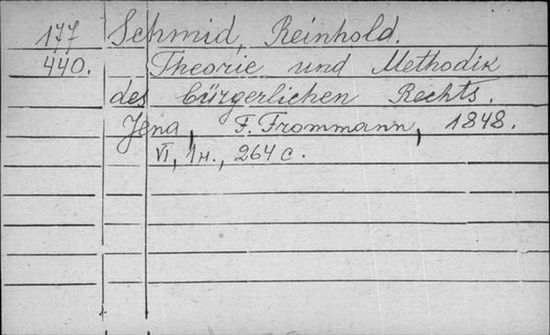 177 Schmid, Reinhold.
440. Theorie und Methodik
des bürgerlichen Rechts.
Jena, F. Frommann, 1848.
VI, 1 н., 264 с.